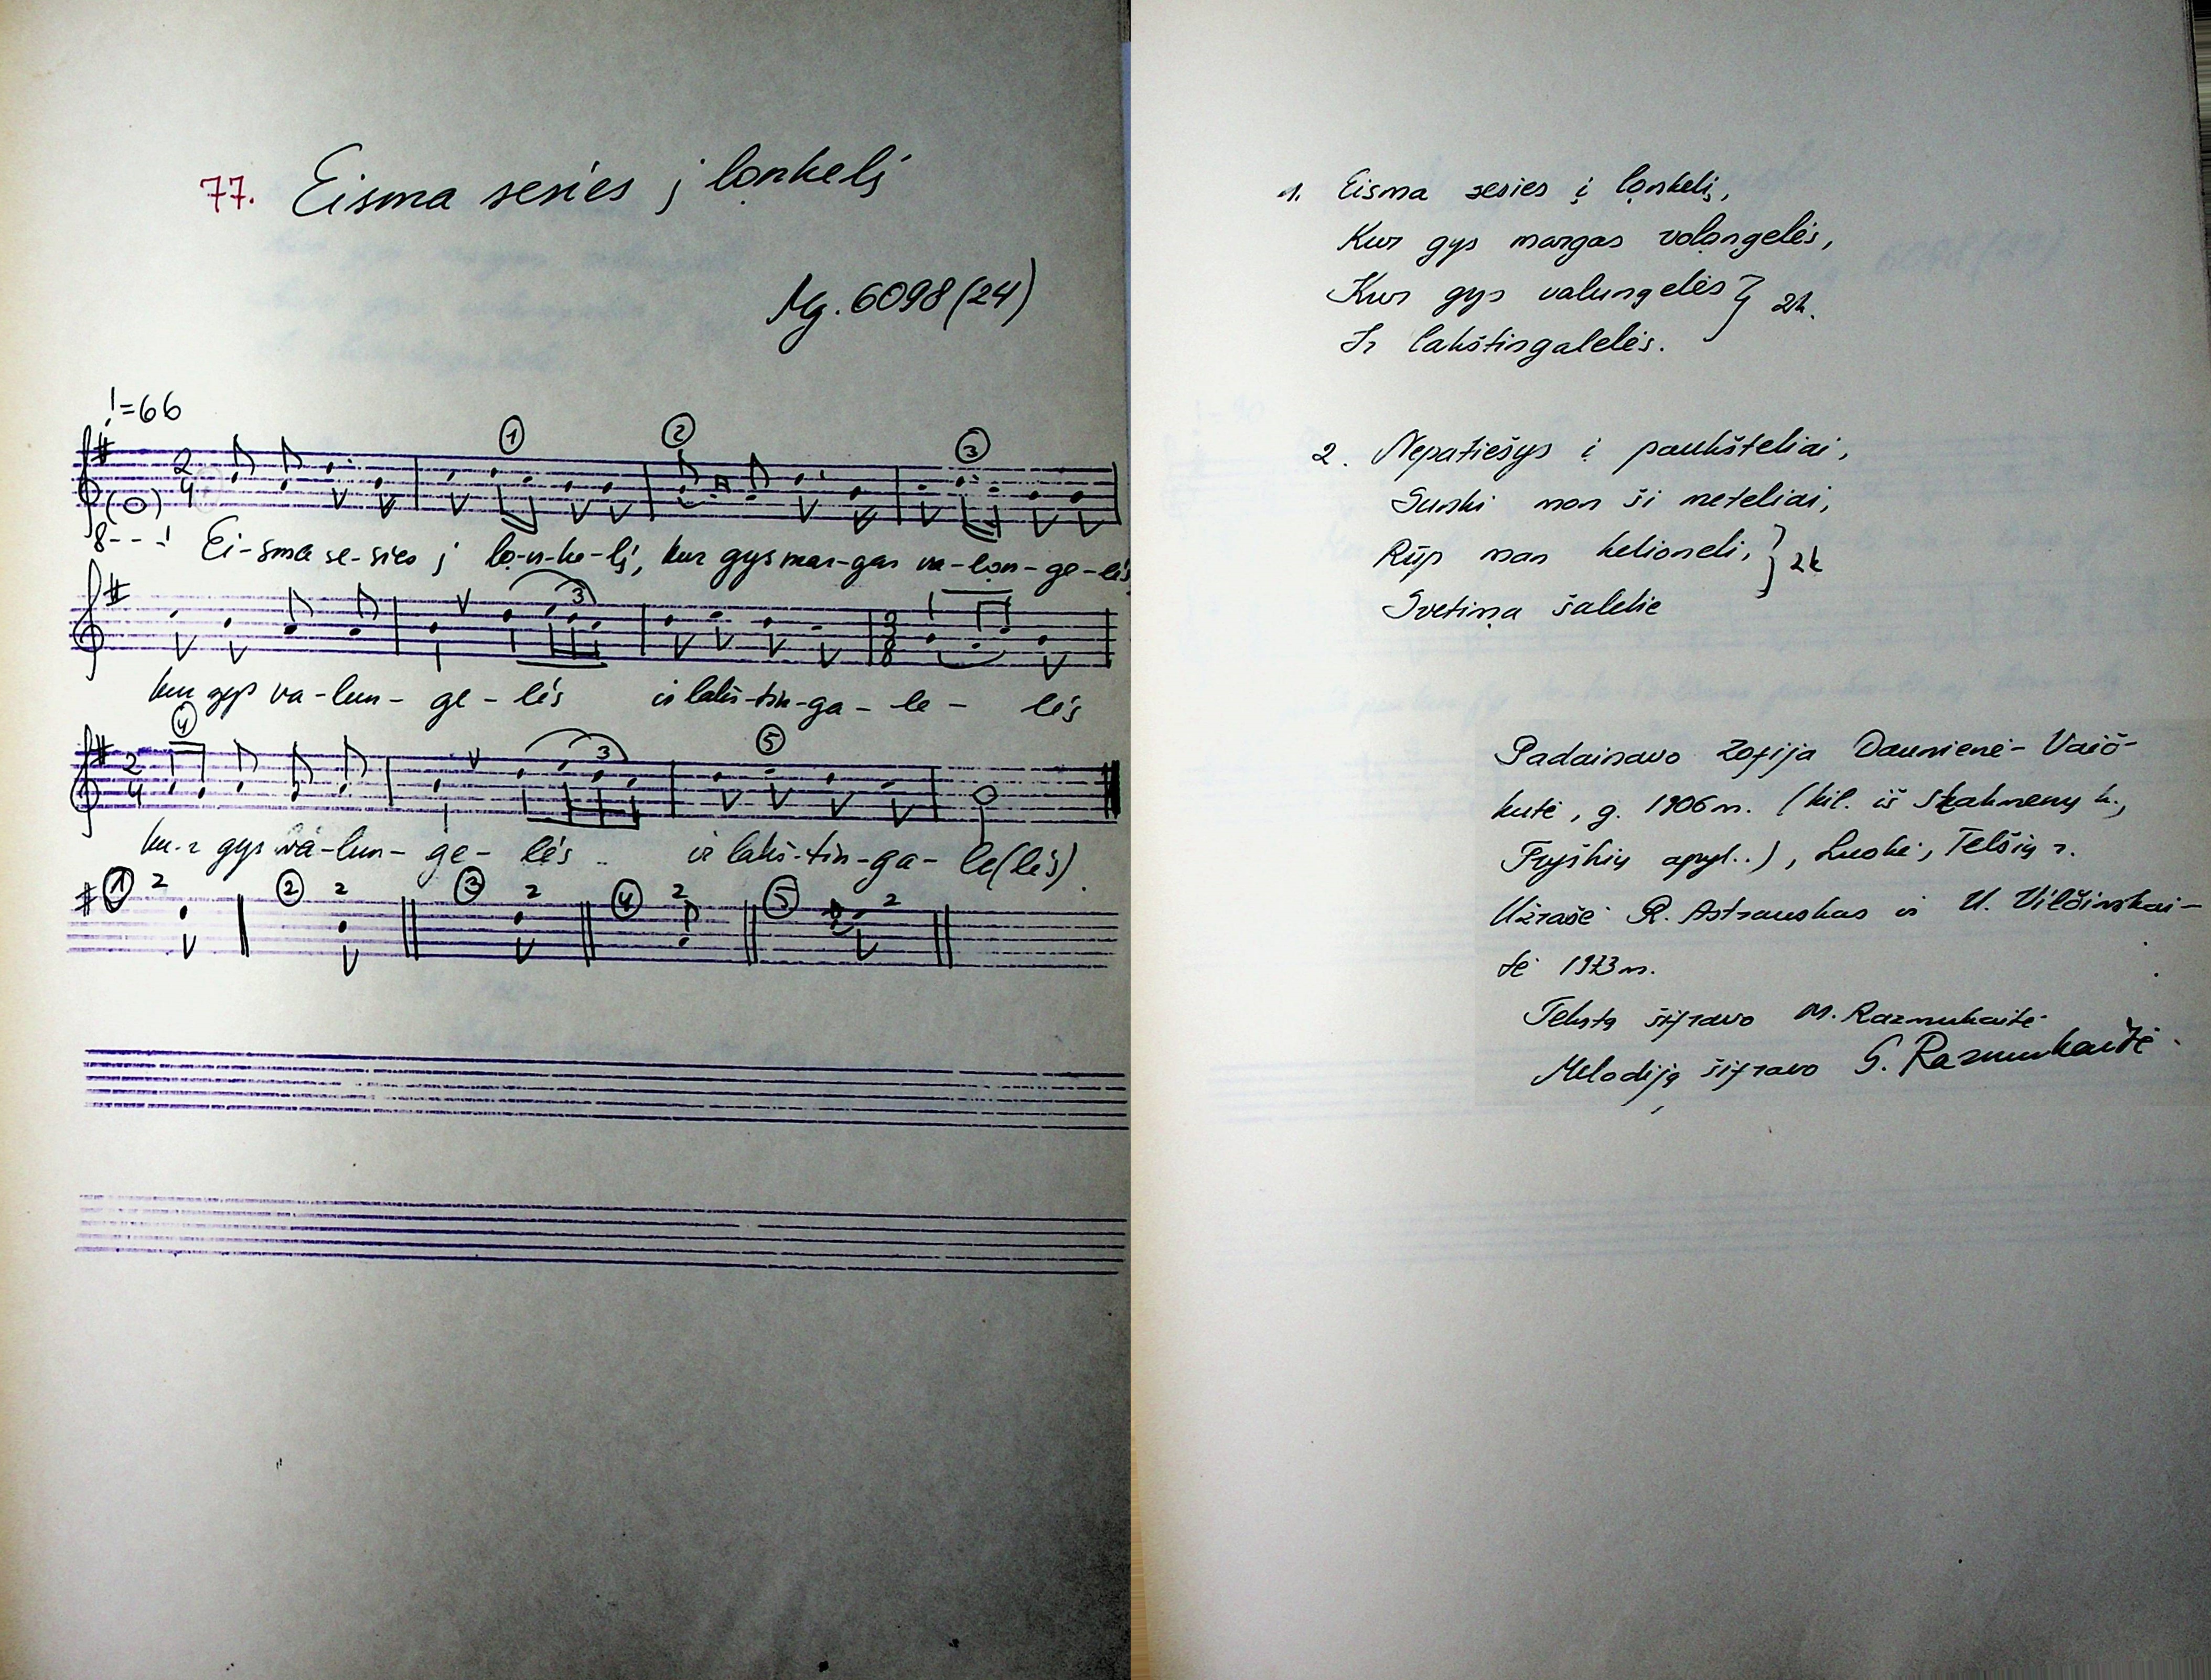 77. Eisma sesies į lọnkelį
Mg. 6098 (24)
♩=66
① ② ③
2/4
8---!
Ei-sma se-sies į lọ-n-ke-lį, kur gys mar-gas va-lọn-ge-lės
3
3/8
kur gys va-lun- ge - lės ir lakš-tin-ga - le - lės
④ 3 ⑤
2/4
ku-r gys va-lun- ge- lės ir lakš-tin-ga- le(lės).
① 2 ② 2 ③ 2 ④ 2 ⑤ 2
1. Eisma sesies į lọnkelį,
Kur gys margas volọngelės,
Kur gys valungelės } 2k.
Ir lakštingalelės.
2. Nepatiešys i paukšteliai,
Sunki mon ši meteliai,
Rūp man kelioneli, } 2k
Svetimạ šalelie
Padainavo Zofija Daunienė-Vaič-
kutė, g. 1906 m. (kil. iš Skakmenų k.,
Tryškių apyl..), Luokė, Telšių r.
Užrašė R. Astrauskas ir U. Vilčinskai-
tė 1973 m.
Tekstą šifravo M. Razmukaitė
Melodiją šifravo G. Razmukaitė.